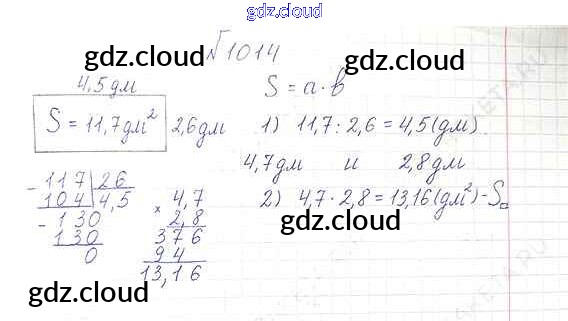 gdz.cloud
gdz.cloud №1014 gdz.cloud
4,5дм
S = 11,7дм² 2,6дм
S = a · b
1) 11,7 : 2,6 = 4,5(дм)
4,7дм и 2,8дм
2) 4,7 · 2,8 = 13,16(дм²) - S□
- 117 | 26
104 | 4,5
- 130
130
0
× 4,7
2,8
376
94
13,16
gdz.cloud
gdz.cloud
gdz.cloud